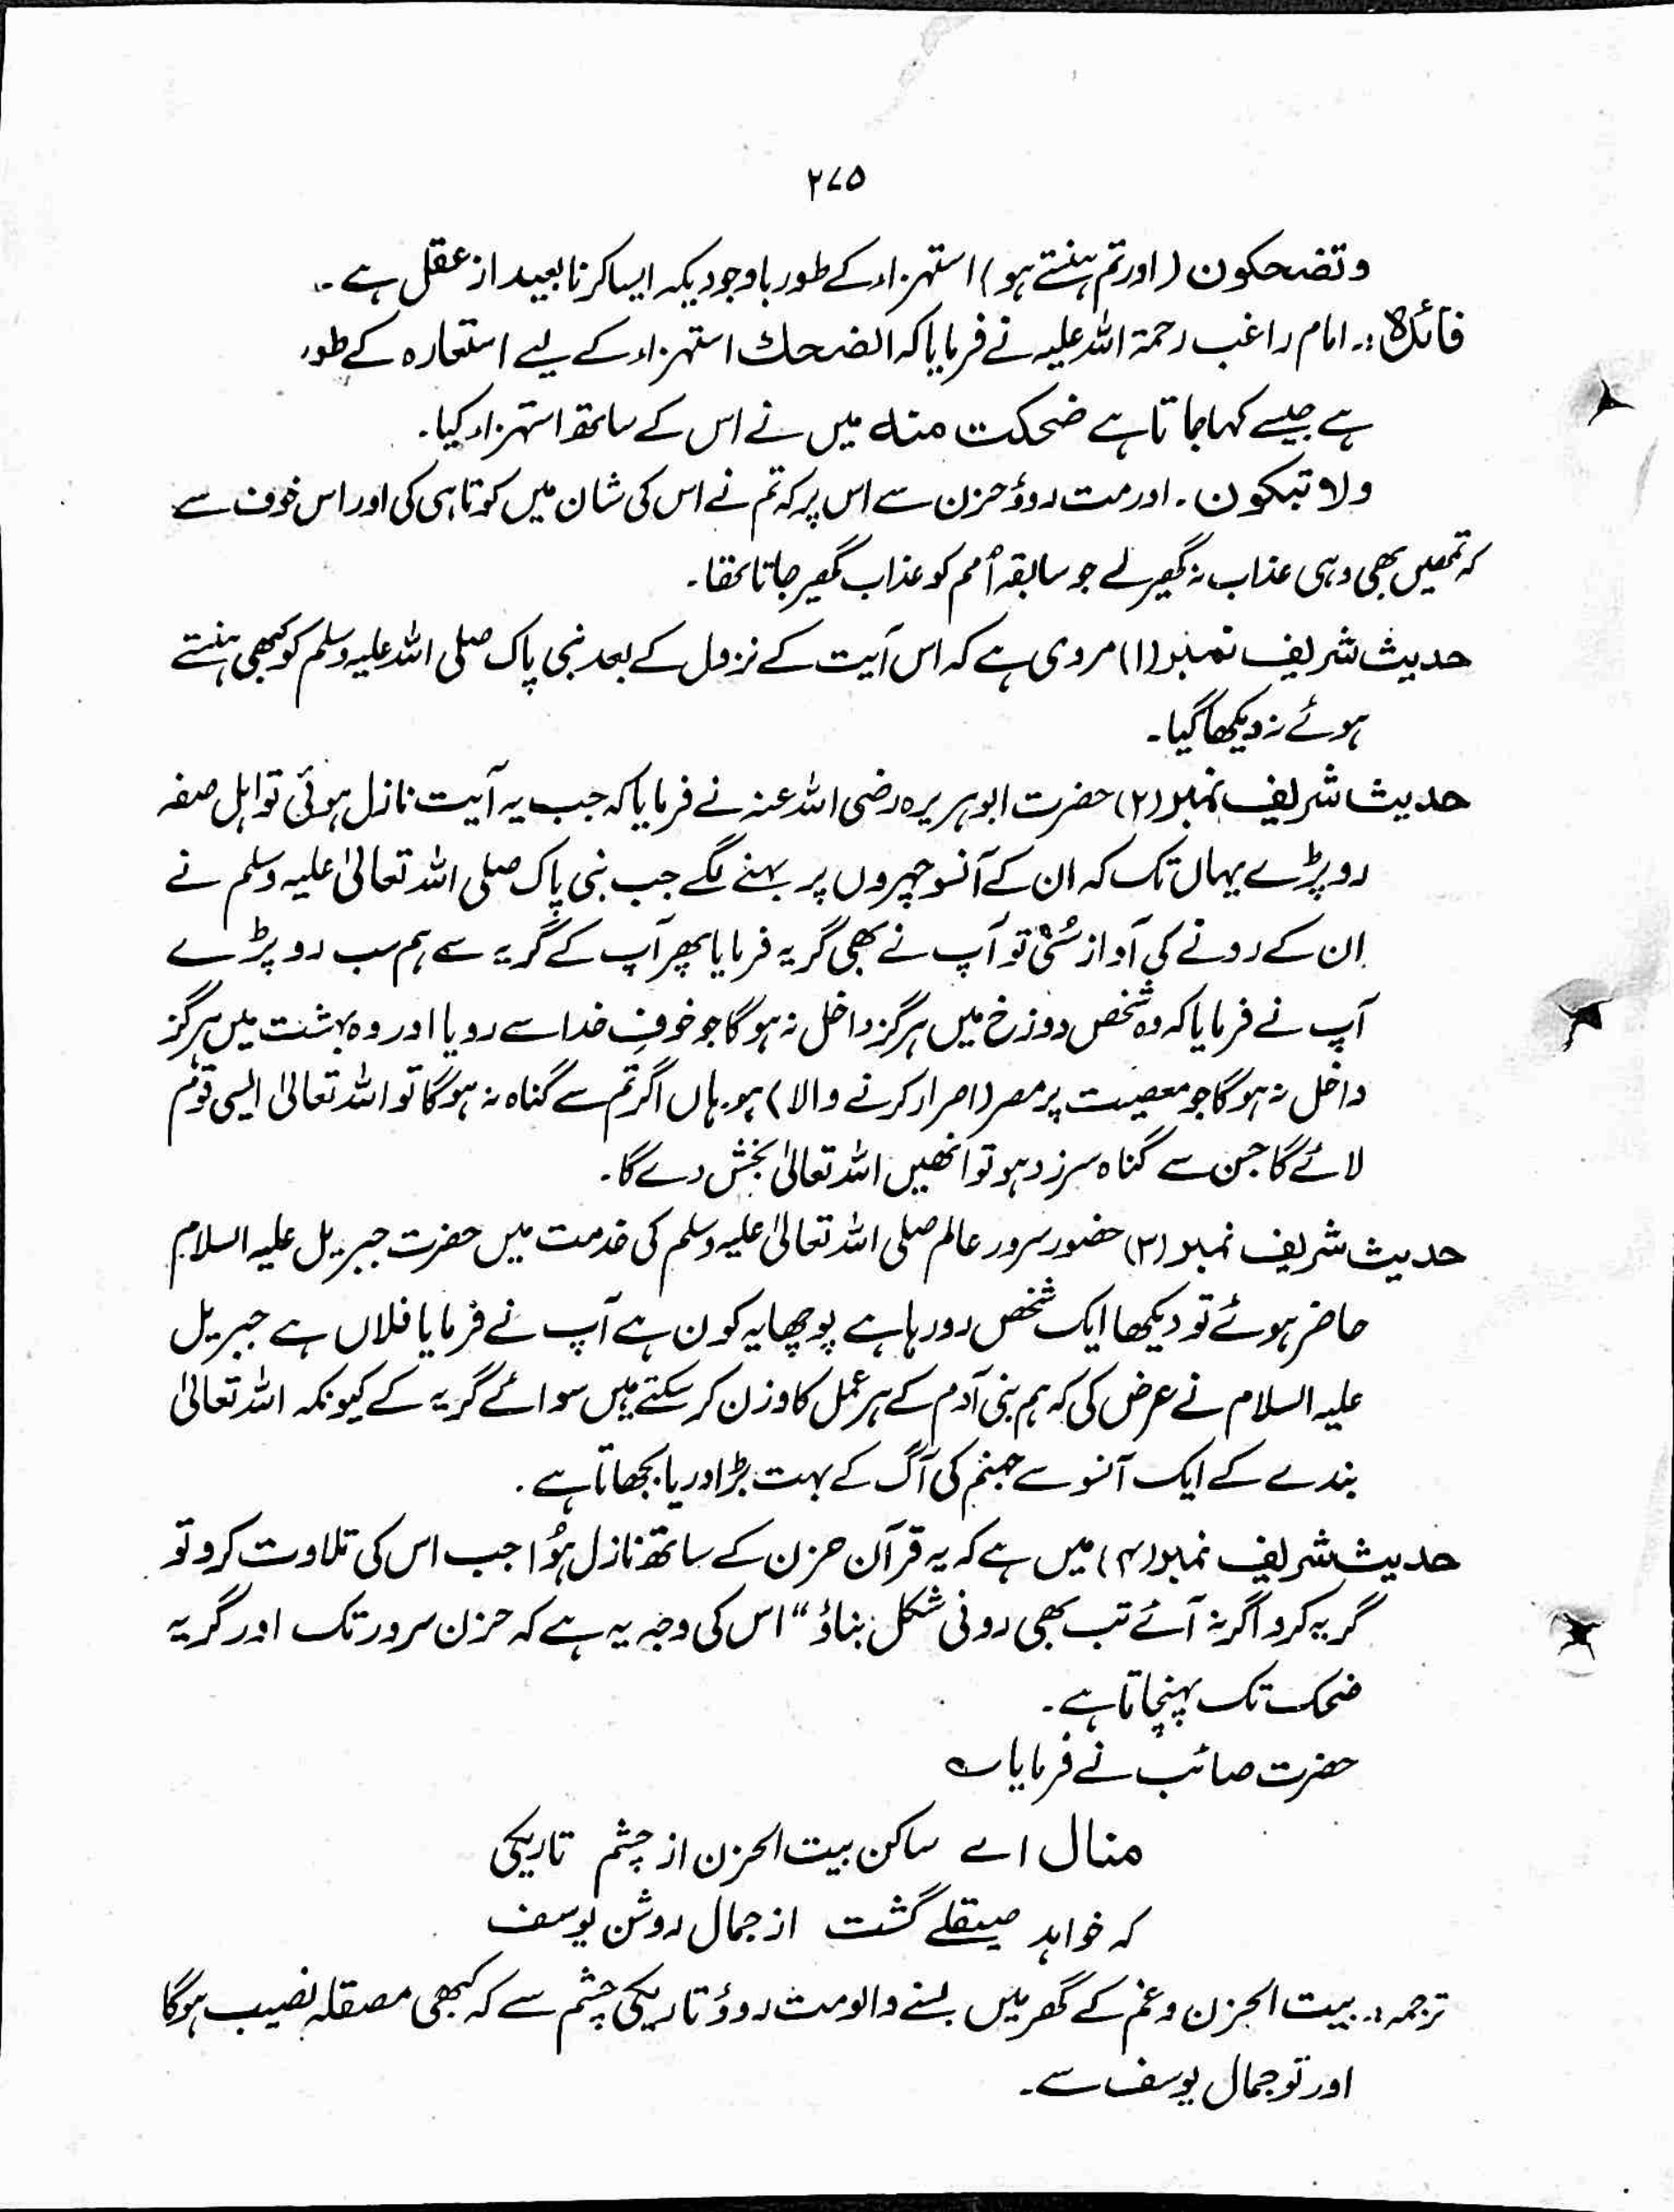 ۲۷۵
وتضحکون (اور تم ہنستے ہو) استہزاء کے طور باوجودیکہ ایسا کرنا بعید از عقل ہے۔
فائدہ:۔ امام راغب رحمۃ اللہ علیہ نے فرمایا کہ الضحك استہزاء کے لیے استعارہ کے طور
ہے جیسے کہا جاتا ہے ضحکت منہ میں نے اس کے ساتھ استہزاء کیا۔
ولا تبکون۔ اور مت روؤ حزن سے اس پر کہ تم نے اس کی شان میں کوتاہی کی اور اس خوف سے
کہ تمھیں بھی وہی عذاب نہ گھیر لے جو سابقہ اُمم کو عذاب گھیر جاتا تھا۔
حدیث شریف نمبر (۱) مروی ہے کہ اس آیت کے نزول کے بعد نبی پاک صلی اللہ علیہ وسلم کو کبھی ہنستے
ہوئے نہ دیکھا گیا۔
حدیث شریف نمبر (۲) حضرت ابوہریرہ رضی اللہ عنہ نے فرمایا کہ جب یہ آیت نازل ہوئی تو اہل صفہ
رو پڑے یہاں تک کہ ان کے آنسو چہروں پر بہنے لگے جب نبی پاک صلی اللہ تعالیٰ علیہ وسلم نے
ان کے رونے کی آواز سُنی تو آپ نے بھی گریہ فرمایا پھر آپ کے گریہ سے ہم سب رو پڑے
آپ نے فرمایا کہ وہ شخص دوزخ میں ہرگز داخل نہ ہوگا جو خوفِ خدا سے رویا اور وہ بہشت میں ہرگز
داخل نہ ہوگا جو معصیت پر مصر (اصرار کرنے والا) ہو۔ ہاں اگر تم سے گناہ نہ ہوگا تو اللہ تعالیٰ ایسی قوم
لائے گا جن سے گناہ سرزد ہو تو انھیں اللہ تعالیٰ بخش دے گا۔
حدیث شریف نمبر (۳) حضور سرور عالم صلی اللہ تعالیٰ علیہ وسلم کی خدمت میں حضرت جبریل علیہ السلام
حاضر ہوئے تو دیکھا ایک شخص رو رہا ہے پوچھا یہ کون ہے آپ نے فرمایا فلاں ہے جبریل
علیہ السلام نے عرض کی کہ ہم بنی آدم کے ہر عمل کا وزن کر سکتے ہیں سوائے گریہ کے کیونکہ اللہ تعالیٰ
بندے کے ایک آنسو سے جہنم کی آگ کے بہت بڑا دریا بجھاتا ہے۔
حدیث شریف نمبر (۴) میں ہے کہ یہ قرآن حزن کے ساتھ نازل ہُوا جب اس کی تلاوت کرو تو
گریہ کرو اگر نہ آئے تب بھی رونی شکل بناؤ“ اس کی وجہ یہ ہے کہ حزن سرور تک اور گریہ
ضحک تک پہنچاتا ہے۔
حضرت صائب نے فرمایا ؎
منال اے ساکن بیت الحزن از چشم تاریکی
کہ خواہد صیقلے گشت از جمال روشن یوسف
ترجمہ:۔ بیت الحزن و غم کے گھر میں بسنے والو مت روؤ تاریکی چشم سے کہ کبھی مصقلہ نصیب ہوگا
اور تو جمال یوسف سے۔